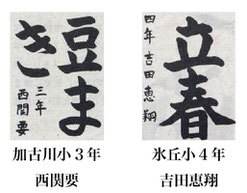 立春
四年 吉田恵翔
氷丘小4年
吉田恵翔
豆ま
き
三年 西関要
加古川小3年
西関要